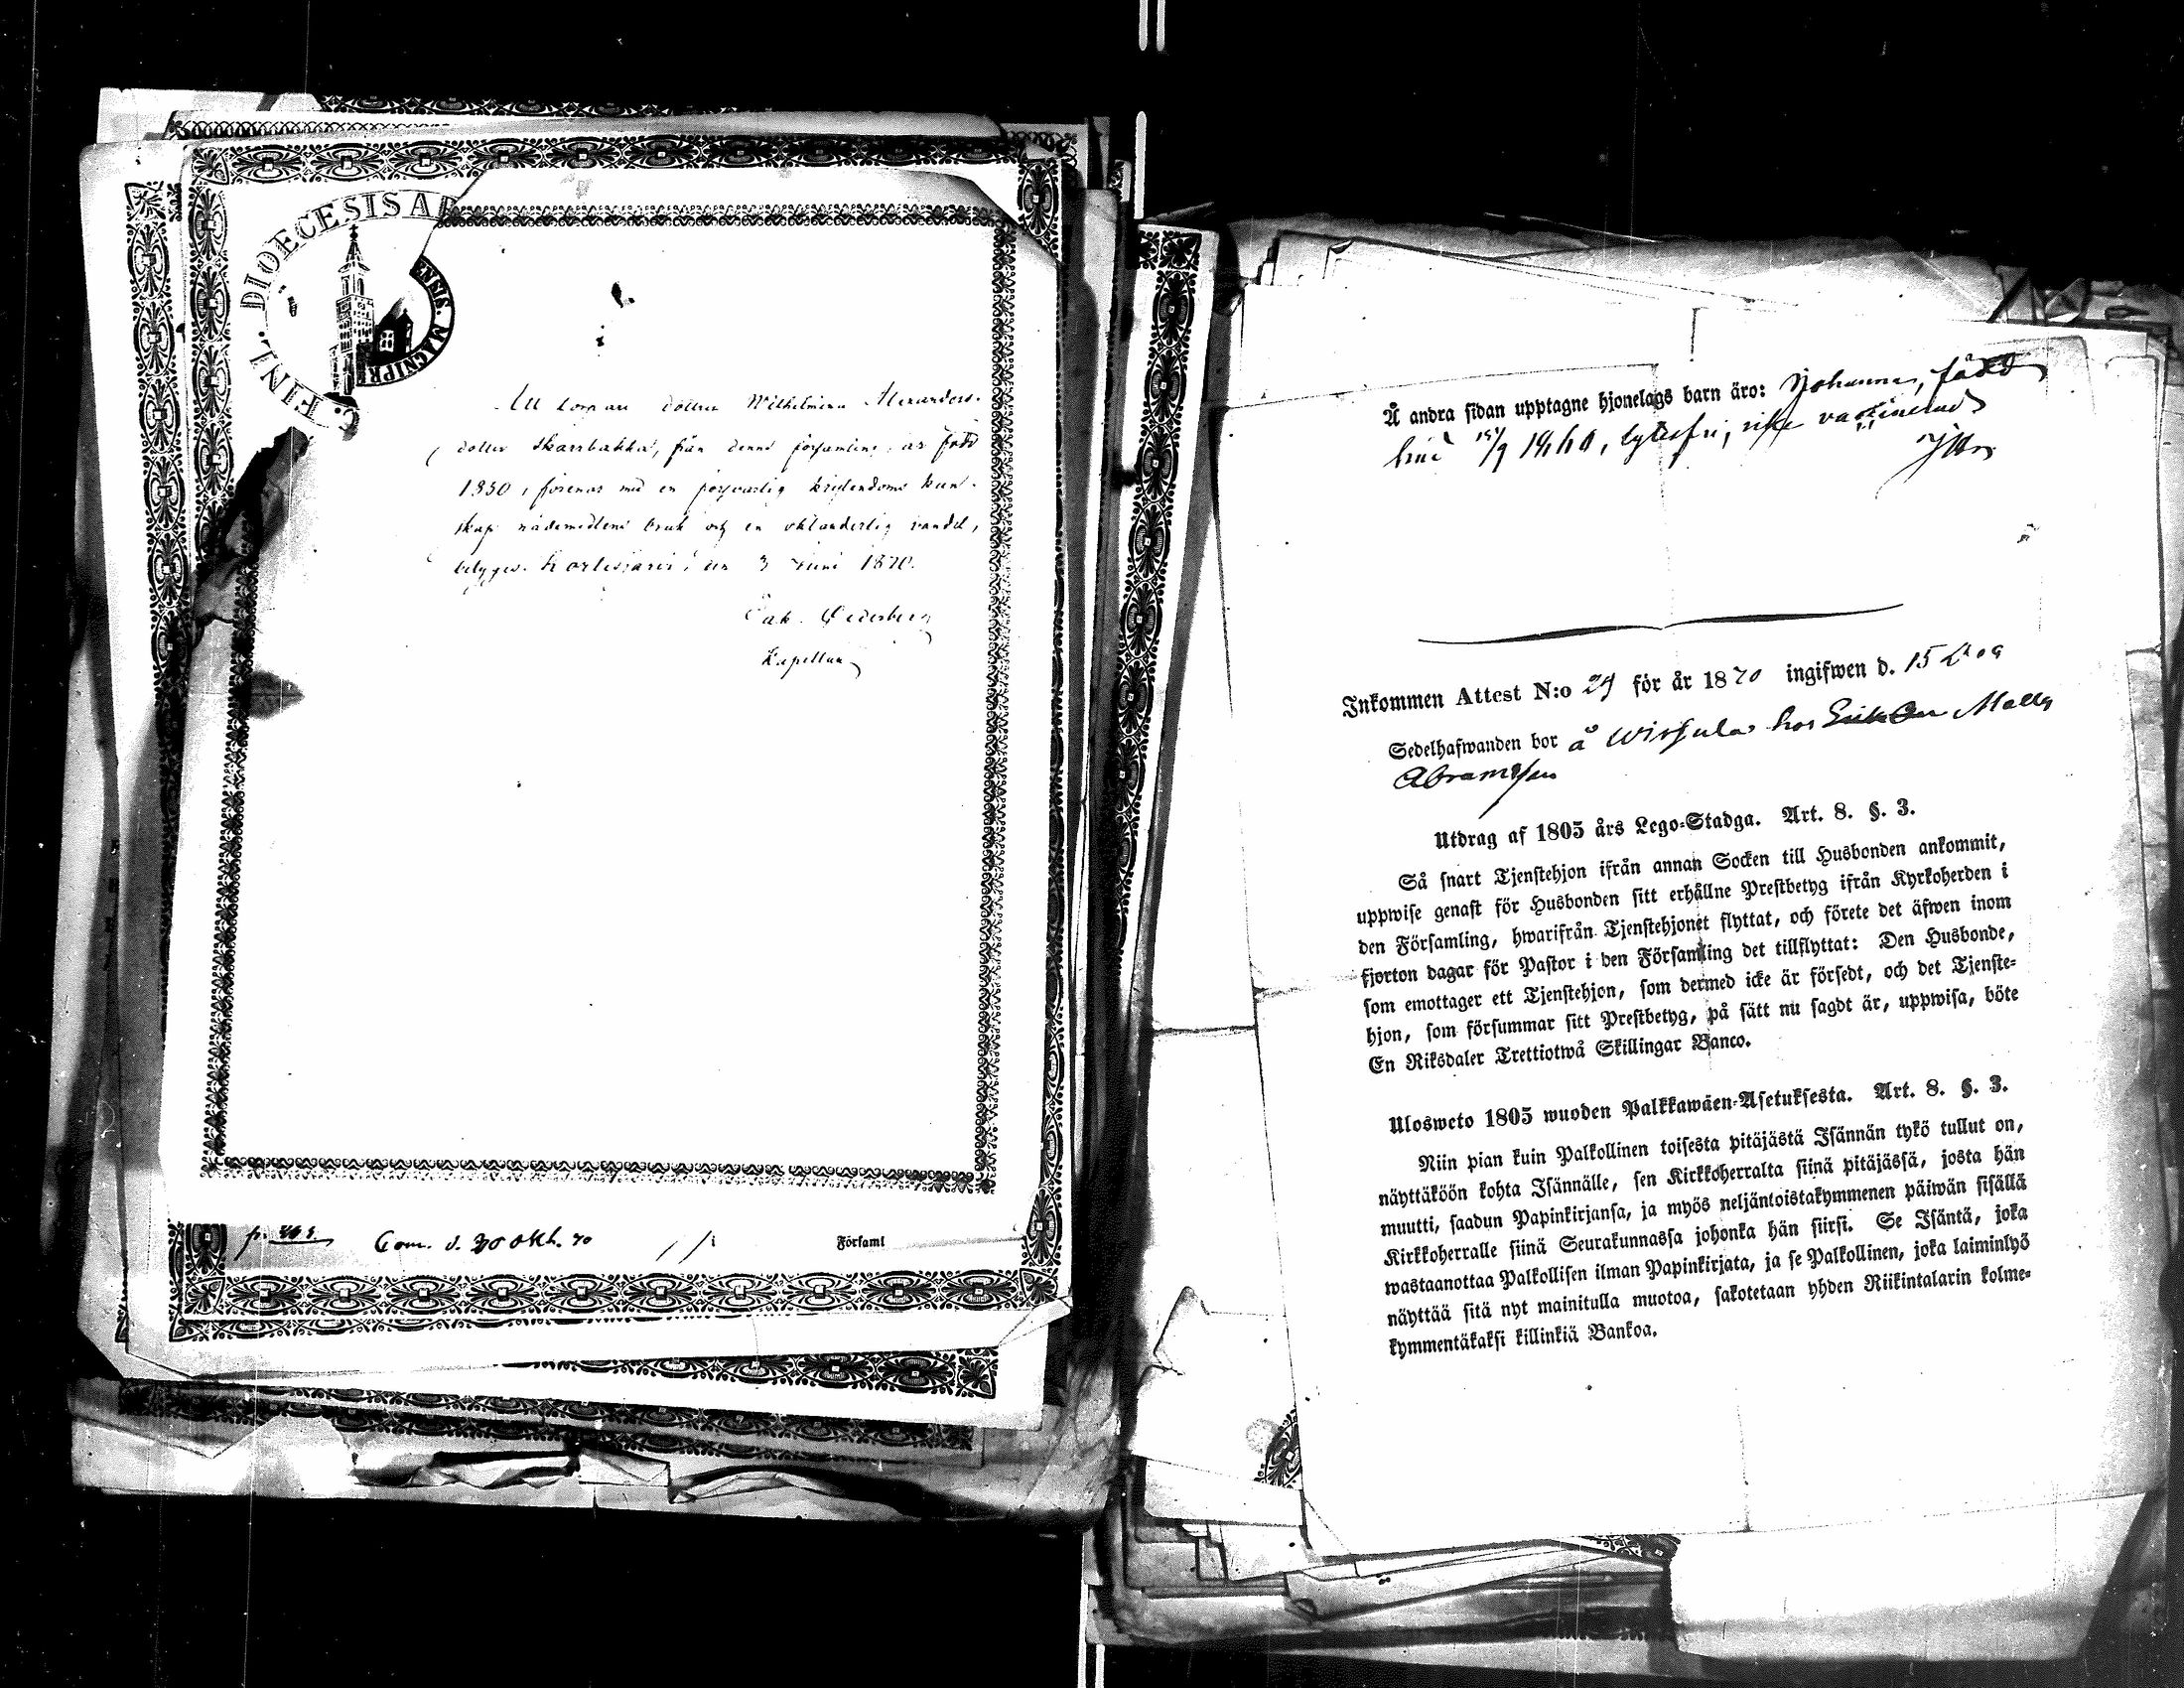 C. FINL. DIOECESIS AB
ENSIS. MAGNIPRI
Att torpare dottren Wilhelmina Alexanders-
dotter Skarrbakka, från denna församling, är född
1850, förenar med en försvarlig kristendoms kun-
skap nådemedlens bruk och en oklanderlig vandel,
betygar. Kortesjärvi, den 3 Juni 1870.
Cederberg
Kapellan
Com. d. 30 Okt. 70
Församl
Å andra sidan upptagne hjonelags barn äro: Johanna, född
lytesfri, icke vaccinerad
Inkommen Attest N:o 29 för år 1870 ingifwen d. 15
Sedelhafwanden bor å Wirsula hos Matts
Abramsson
Utdrag af 1805 års Lego-Stadga. Art. 8. §. 3.
Så snart Tjenstehjon ifrån annan Socken till Husbonden ankommit,
uppwise genast för Husbonden sitt erhållne Prestbetyg ifrån Kyrkoherden i
den Församling, hwarifrån Tjenstehjonet flyttat, och förete det äfwen inom
fjorton dagar för Pastor i den Församling det tillflyttat: Den Husbonde,
som emottager ett Tjenstehjon, som dermed icke är försedt, och det Tjenste-
hjon, som försummar sitt Prestbetyg, på sätt nu sagdt är, uppwisa, böte
En Riksdaler Trettiotwå Skillingar Banco.
Ulosweto 1805 wuoden Palkkawäen-Asetuksesta. Art. 8. §. 3.
Niin pian kuin Palkollinen toisesta pitäjästä Isännän tykö tullut on,
näyttäköön kohta Isännälle, sen Kirkkoherralta siinä pitäjässä, josta hän
muutti, saadun Papinkirjansa, ja myös neljäntoistakymmenen päiwän sisällä
Kirkkoherralle siinä Seurakunnassa johonka hän siirsi. Se Isäntä, joka
wastaanottaa Palkollisen ilman Papinkirjata, ja se Palkollinen, joka laiminlyö
näyttää sitä nyt mainitulla muotoa, sakotetaan yhden Riikintalarin kolme-
kymmentäkaksi killinkiä Bankoa.